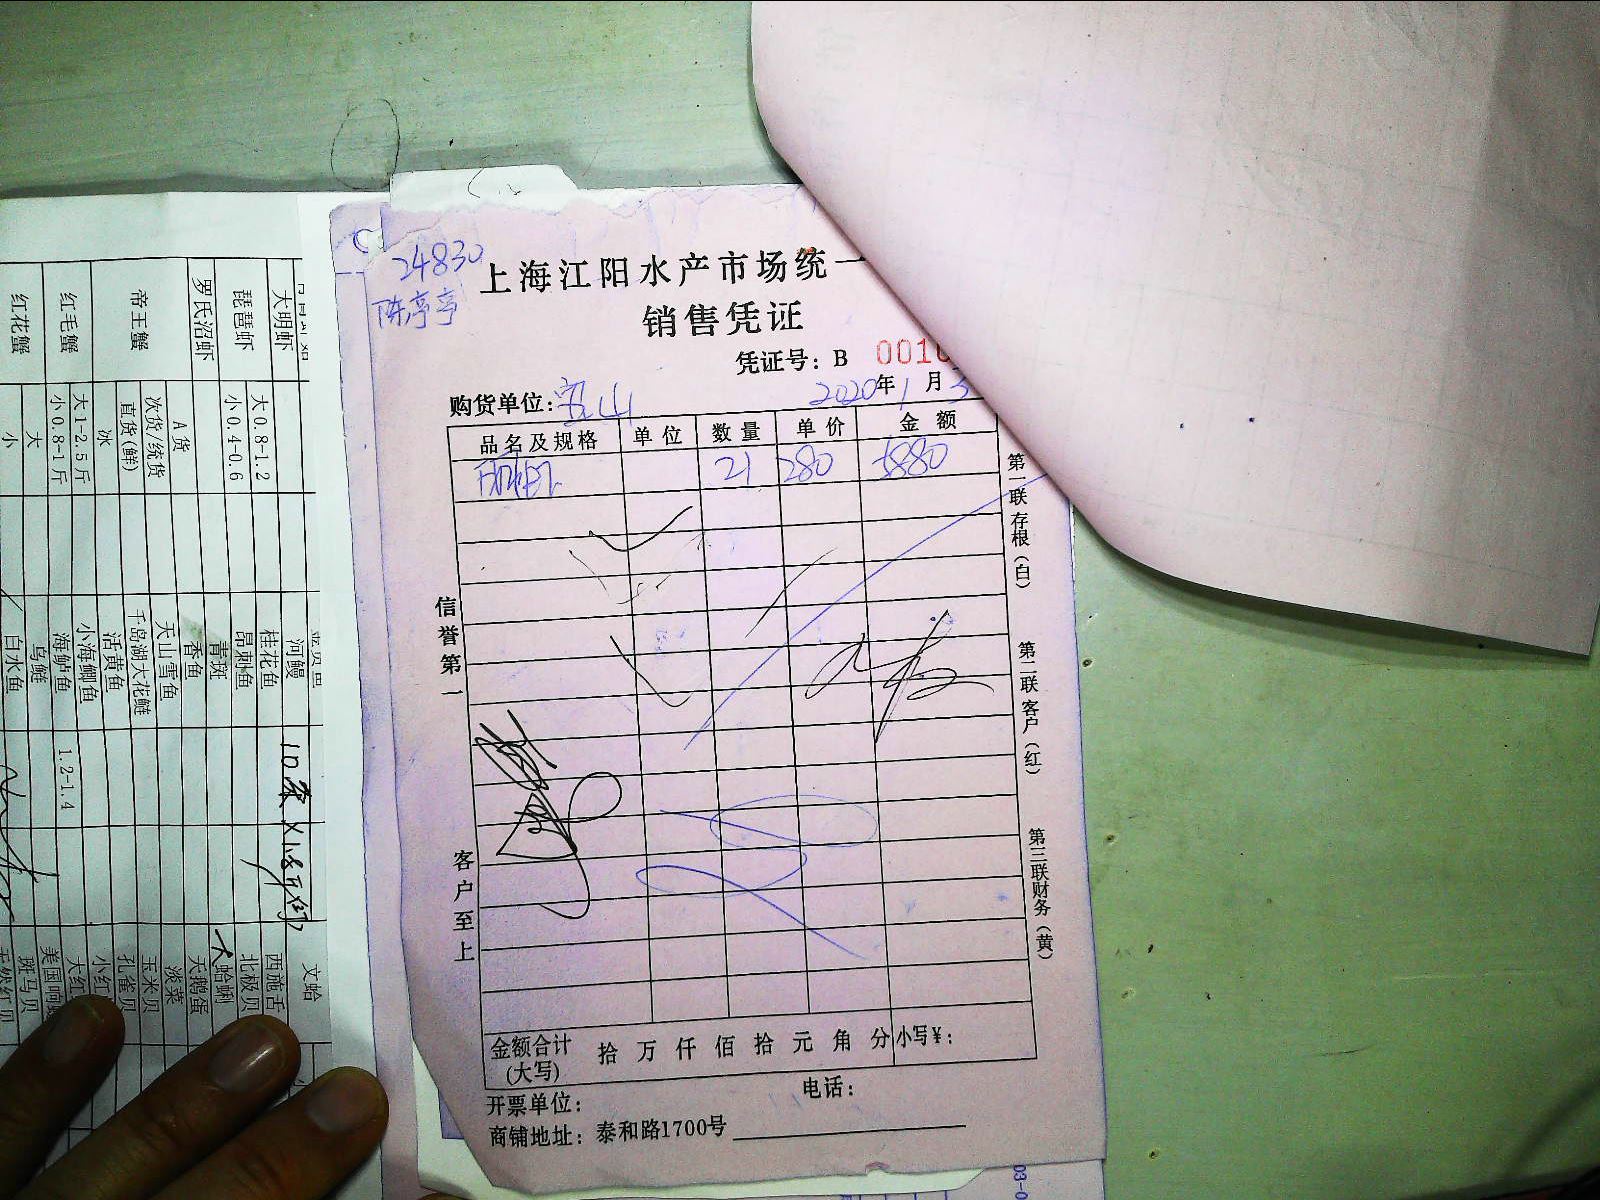 24830
陈亭亭
上海江阳水产市场统一
销售凭证
凭证号：B 0010
购货单位：宝山 2020年1月3
品名及规格 单位 数量 单价 金额
21 280 5880
第一联存根（白）
第二联客户（红）
第三联财务（黄）
信誉第一
客户至上
金额合计 拾 万 仟 佰 拾 元 角 分 小写¥：
(大写)
电话：
开票单位：
商铺地址：泰和路1700号
大明虾
琵琶虾 大0.8-1.2
小0.4-0.6
罗氏沼虾
帝王蟹 A货
次货/统货
直货(鲜)
冰
红毛蟹 大1-2.5斤
小0.8-1斤
红花蟹 大
小
河鳗
桂花鱼
昂刺鱼
青斑
香鱼
天山雪鱼
千岛湖大花鲢
活黄鱼
小海鲫鱼
海鲈鱼 1.2-1.4
乌鲢
白水鱼
文蛤
西施舌
北极贝
大蛤蜊
天鹅蛋
淡菜
玉米贝
孔雀贝
小红
大红
美国响螺
斑马贝
03-0